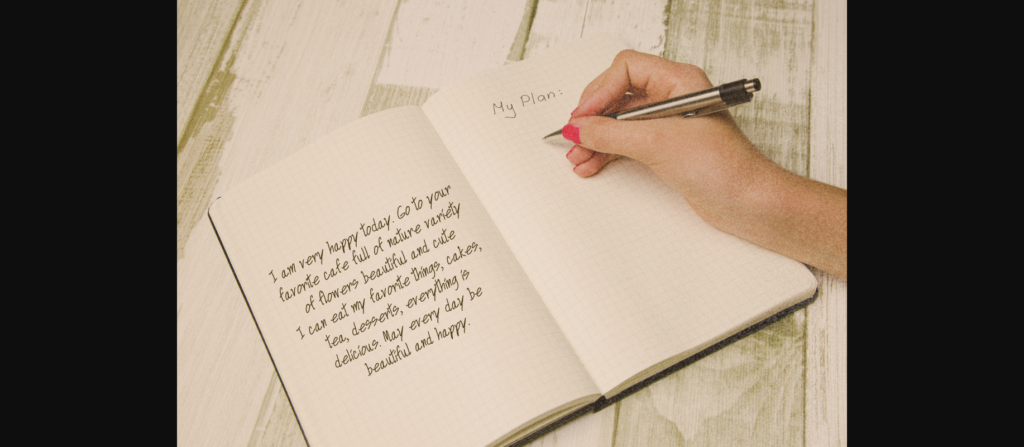 I am very happy today. Go to your
favorite cafe full of nature variety
of flowers beautiful and cute
I can eat my favorite things, cakes,
tea, desserts, everything is
delicious. May every day be
beautiful and happy.
My Plan: